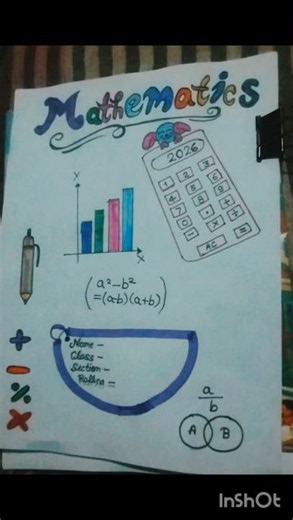 Mathematics
2026
1 2 3
4 5 6
7 8 9
0 · × +
- ÷ =
AC
Y
X
a²-b²
=(a-b)(a+b)
+
-
%
×
Name -
Class -
Section -
Rollno =
a
b
A B
InShOt